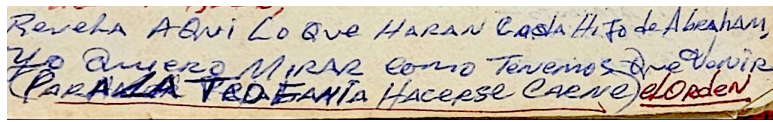 Revela AQUi Lo Que HARAN Cada HiJo de Abraham,
Yo Quiero MiRAR como Tenemos Que Venir
(PARA LA TEOFANÍA HACERSE CARNE) el ORDEN